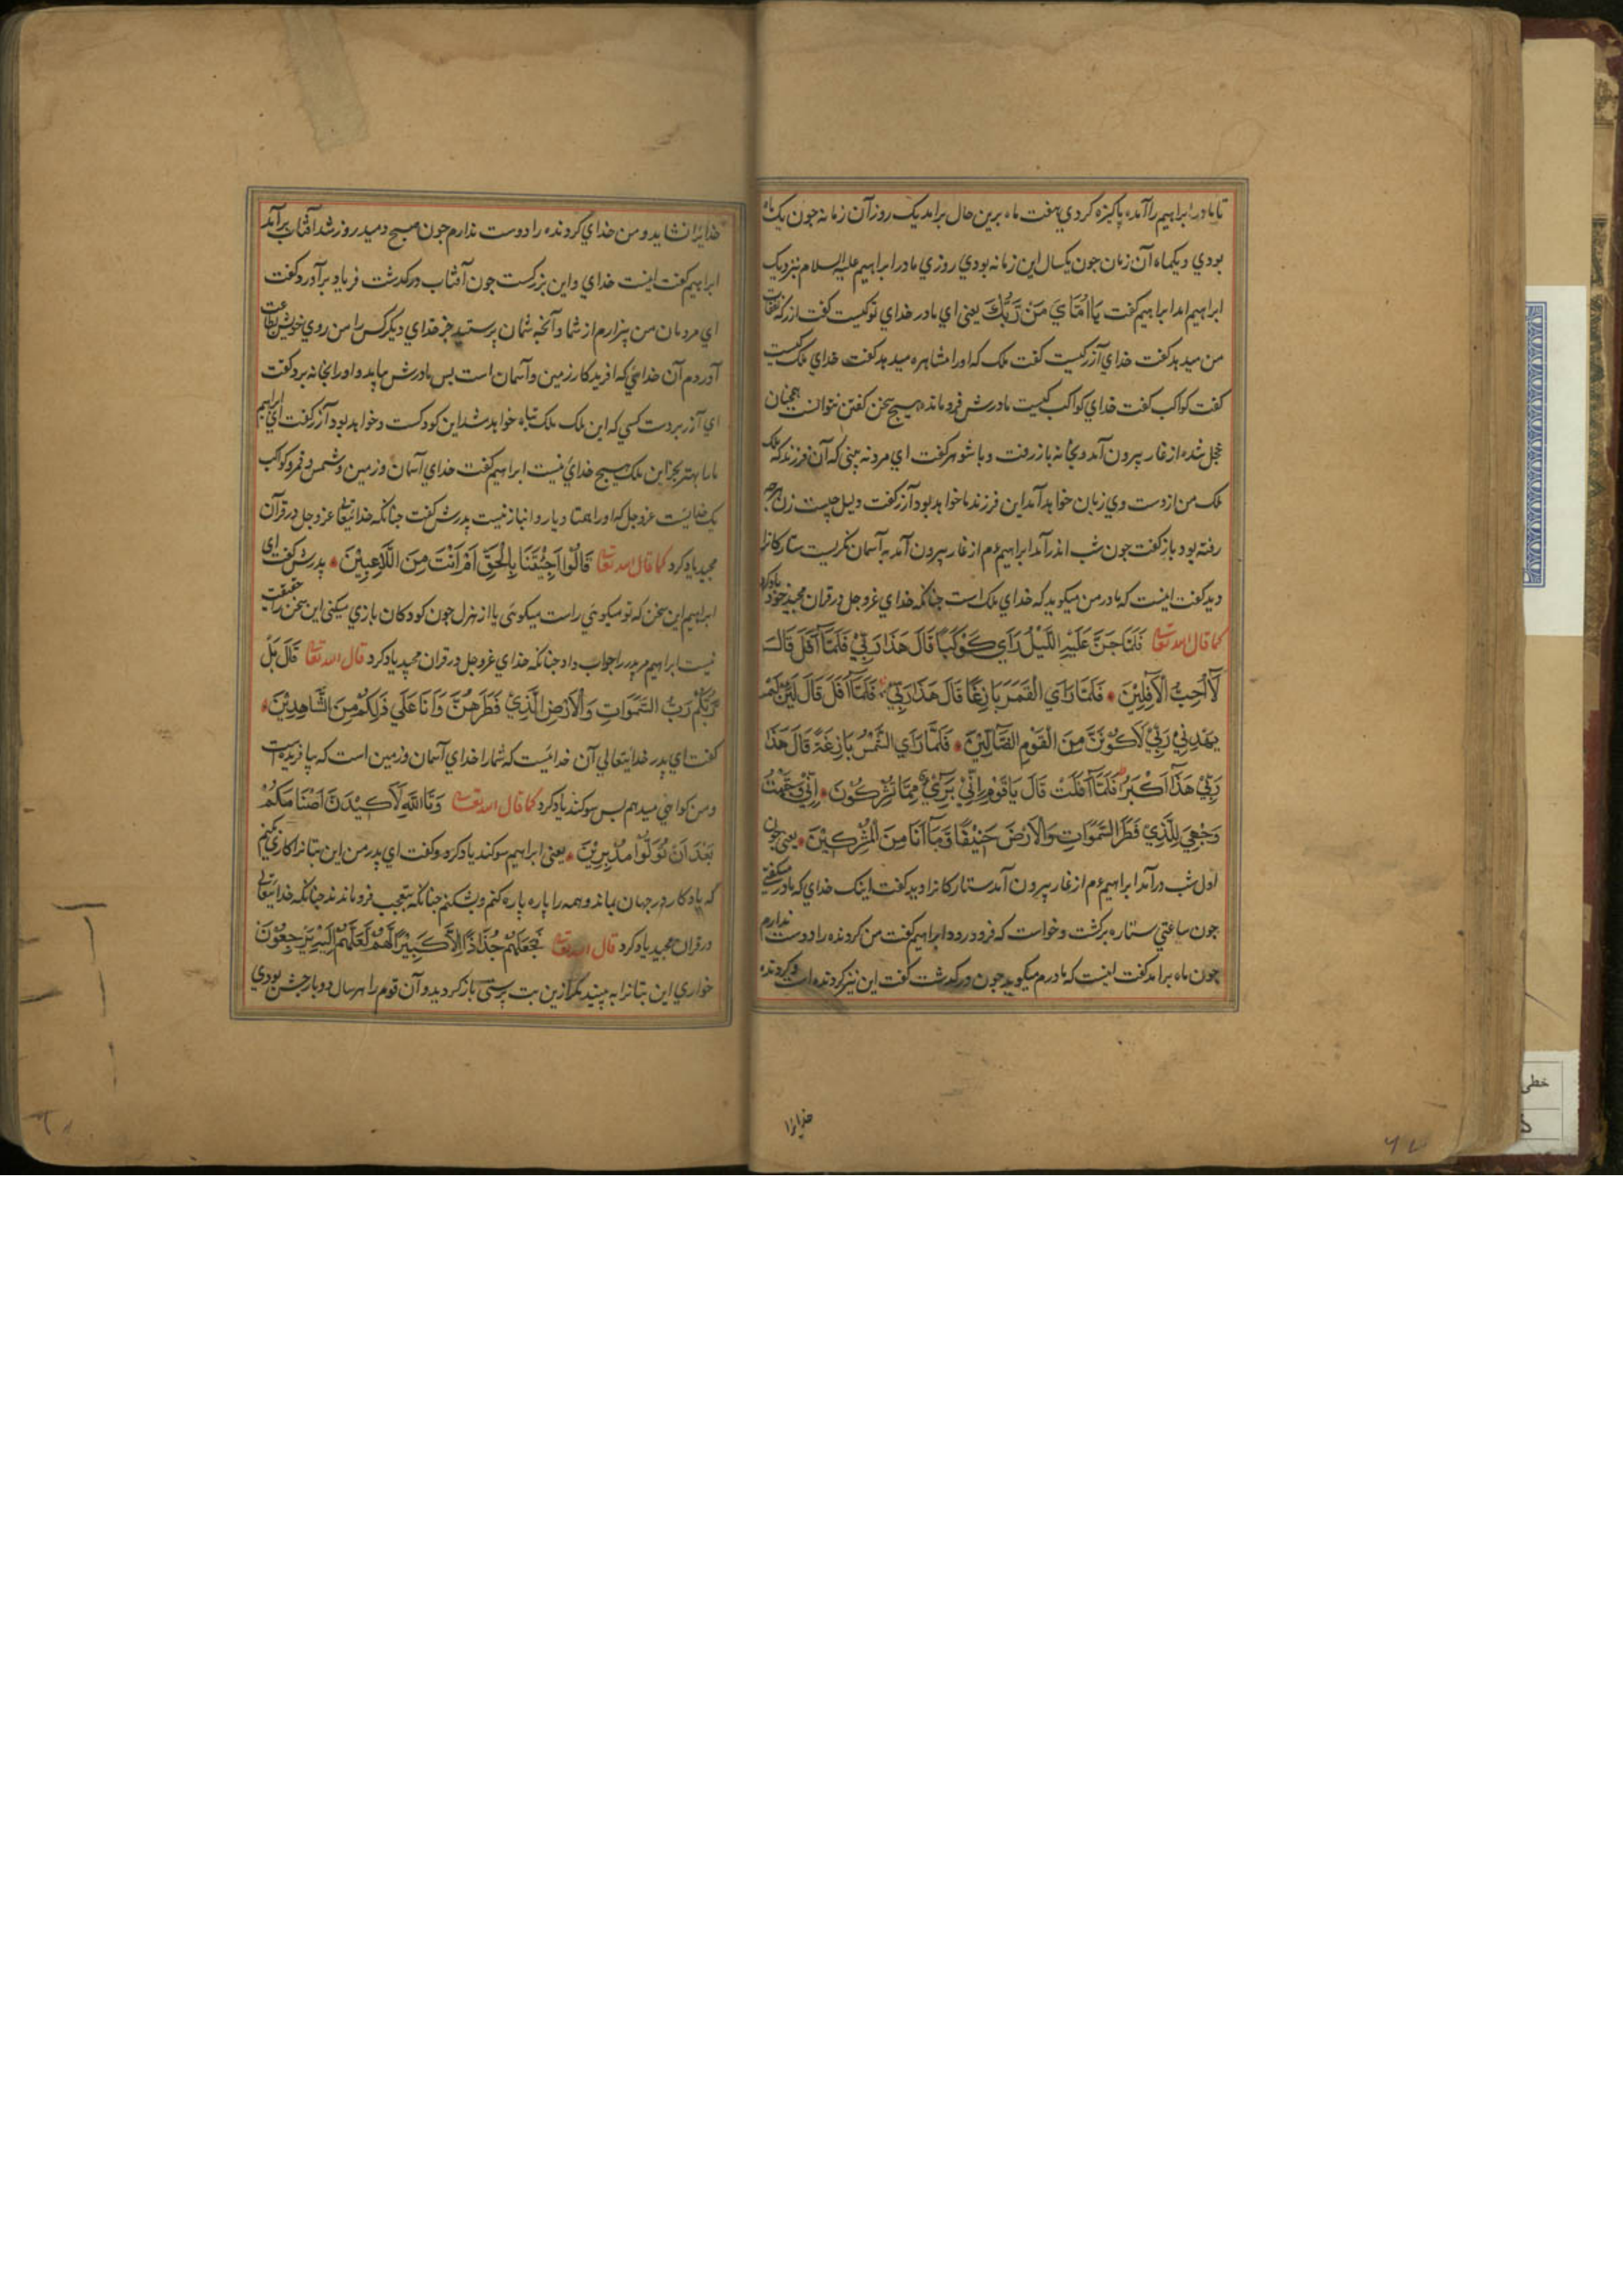 تا مادر ابراهیم را آمده پاکیزه کردی هفت ماه برین حال برامد یک روز آن زمانه جون یک ماه
بودی و یکماه آن زمان جون یکسال این زمانه بودی روزی مادر ابراهیم علیه السلام بنزدیک
ابراهیم امد ابراهیم کفت یَا اُمَّایَ مَنْ رَبُّكَ یعنی ای مادر خدای تو کیست کفت ازر که نفقات
من میدهد کفت خدای آزر کیست کفت ملک که اورا مشاهره میدهد کفت خدای ملک کیست
کفت کواکب کفت خدای کواکب کیست مادرش فرو مانده هیج سخن کفتن نتوانست همچنان
خجل شده از غار بیرون آمد و بخانه باز رفت و با شوهر کفت ای مرد نه بینی که آن فرزند که ملک
ملک من از دست وی زیان خواهد آمد این فرزند ما خواهد بود آزر کفت دلیل چیست زن هرجه
رفته بود باز کفت جون شب اندر آمد ابراهیم ءم از غار بیرون آمد به آسمان نکریست ستارکانرا
دید کفت اینست که مادر من میکوید که خدای ملک است چنانکه خدای عزوجل در قران مجید خود یاد کرد
کما قال الله تعالی فَلَمَّا جَنَّ عَلَیْهِ اللَّیْلُ رَاٰی كَوْكَبًا قَالَ هَذَا رَبِّیْ فَلَمَّا اَفَلَ قَالَ
لَا اُحِبُّ الْاٰفِلِیْنَ فَلَمَّا رَاَی الْقَمَرَ بَازِغًا قَالَ هَذَا رَبِّیْ فَلَمَّا اَفَلَ قَالَ لَئِنْ لَمْ
یَهْدِنِیْ رَبِّیْ لَاَكُوْنَنَّ مِنَ الْقَوْمِ الضَّالِّیْنَ فَلَمَّا رَاَی الشَّمْسَ بَازِغَةً قَالَ هَذَا
رَبِّیْ هَذَا اَكْبَرُ فَلَمَّا اَفَلَتْ قَالَ یَاقَوْمِ اِنِّیْ بَرِیْءٌ مِمَّا تُشْرِكُوْنَ اِنِّیْ وَجَّهْتُ
وَجْهِیَ لِلَّذِیْ فَطَرَ السَّمَوَاتِ وَالْاَرْضَ حَنِیْفًا وَمَا اَنَا مِنَ الْمُشْرِكِیْنَ یعنی جون
اول شب در آمد ابراهیم ءم از غار بیرون آمد ستارکانرا دید کفت اینک خدای که مادر میکفتی
جون ساعتی ستاره برکشت و خواست که فرود رود ابراهیم کفت من کردنده را دوست ندارم
جون ماه برامد کفت اینست که مادرم میکوید جون درکذشت کفت این نیز کردنده است و کردنده
خدایرا
خدایرا نشاید و من خدای کردنده را دوست ندارم جون صبح دمید روز شد آفتاب برآمد
ابراهیم کفت اینست خدای و این بزرکست جون آفتاب درکذشت فریاد برآورد و کفت
ای مردمان من بیزارم از شما و آنجه شمان پرستید جز خدای دیکر کس را من روی خویش بطاعت
آوردم آن خدایی که افریدکار زمین و آسمان است بس مادرش بیامد و اورا بخانه برد و کفت
ای آزر بردست کسی که این ملک ملک تباه خواهد شد این کودکست و خواهد بود آزر کفت ای ابراهیم
ما را بهتر بجز این ملک هیج خدای نیست ابراهیم کفت خدای آسمان و زمین و شمس و قمر و کواکب
یک خدایست عزوجل که اورا همتا و یار و انباز نیست پدرش کفت جنانکه خدایتعالی عزوجل در قرآن
مجید یاد کرد کما قال الله تعالی قَالُوْا اَجِئْتَنَا بِالْحَقِّ اَمْ اَنْتَ مِنَ اللَّاعِبِیْنَ پدرش کفت ای
ابراهیم این سخن که تو میکویی راست میکویی یا از هزل جون کودکان بازی میکنی این سخن را حقیقت
نیست ابراهیم مر پدر را جواب داد جنانکه خدای عزوجل در قران مجید یاد کرد قال الله تعالی قَالَ بَلْ
رَبُّكُمْ رَبُّ السَّمَوَاتِ وَالْاَرْضِ الَّذِیْ فَطَرَهُنَّ وَاَنَا عَلَی ذٰلِكُمْ مِنَ الشَّاهِدِیْنَ
کفت ای پدر خدایتعالی آن خدائیست که شما را خدای آسمان و زمین است که بیافریده است
و من کواهی میدهم بس سوکند یاد کرد کما قال الله تعالی وَتَاللهِ لَاَكِیْدَنَّ اَصْنَامَكُمْ
بَعْدَ اَنْ تُوَلُّوْا مُدْبِرِیْنَ یعنی ابراهیم سوکند یاد کرد و کفت ای پدر من این بتانرا کاری کنم
که یادکار در جهان بماند و همه را پاره پاره کنم و بشکنم جنانکه بتعجب فرو ماندند جنانکه خدایتعالی
در قران مجید یاد کرد قال الله تعالی فَجَعَلَهُمْ جُذَاذًا اِلَّا كَبِیْرًا لَهُمْ لَعَلَّهُمْ اِلَیْهِ یَرْجِعُوْنَ
خواری این بتانرا به بینید مکر ازین بت پرستی باز کردید و آن قوم را هر سال دو بار جشن بودی
خطی